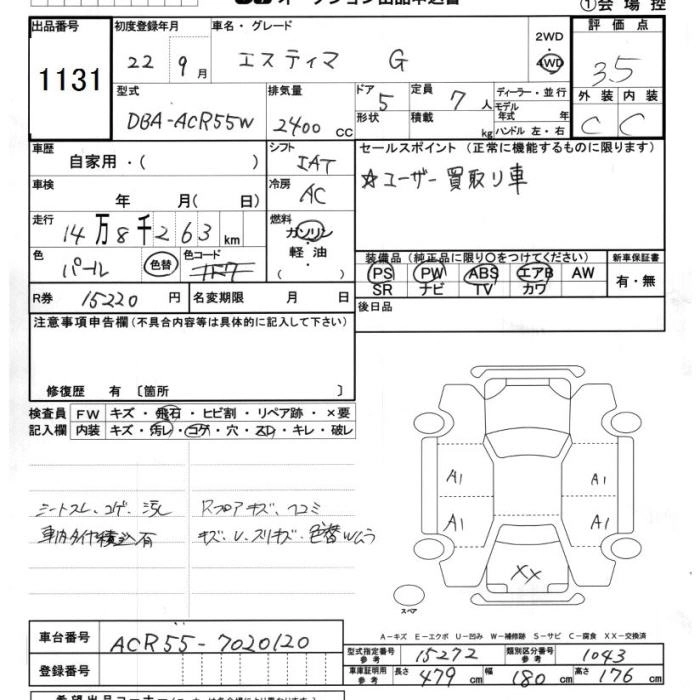 オークション出品申込書 ①会場控
出品番号 初度登録年月 車名・グレード 2WD 評価点
1131 22 9月 エスティマ G 4WD 3.5
型式 排気量 ドア 5 定員 7人 ディーラー・並行 外装 内装
DBA-ACR55W 2400cc 形状 積載 kg モデル年式 年 C C
ハンドル 左・右
車歴 シフト セールスポイント (正常に機能するものに限ります)
自家用・( ) IAT ☆ユーザー買取り車
車検 年 月( 日) 冷房 AC
走行 14万8千263km 燃料 ガソリン・軽油・( )
色 パール 色替 色コード 装備品 (純正品に限り○をつけてください) 新車保証書
PS PW ABS エアB AW 有・無
SR ナビ TV カワ
R券 15220円 名変期限 月 日 後日品
注意事項申告欄 (不具合内容等は具体的に記入して下さい)
修復歴 有 〔箇所 〕
検査員 FW キズ・飛石・ヒビ割・リペア跡・×要
記入欄 内装 キズ・汚レ・コゲ・穴・スレ・キレ・破レ
シートスレ、コゲ、汚レ Rフロアキズ、凹コミ
車内タイヤ積込有 キズ、U、スリキズ・色替Wムラ
A1 A1
A1 A1
XX
スペア
A-キズ E-エクボ U-凹み W-補修跡 S-サビ C-腐食 XX-交換済
車台番号 ACR55-7020120
型式指定番号 参考 15272 類別区分番号 参考 1043
登録番号 車庫証明用 参考 長さ 479cm 幅 180cm 高さ 176cm